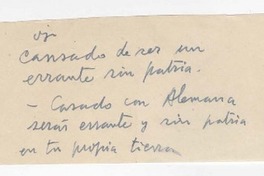 cansado de ser un
errante sin patria.
- Casado con Alemana
serás errante y sin patria
en tu propia tierra